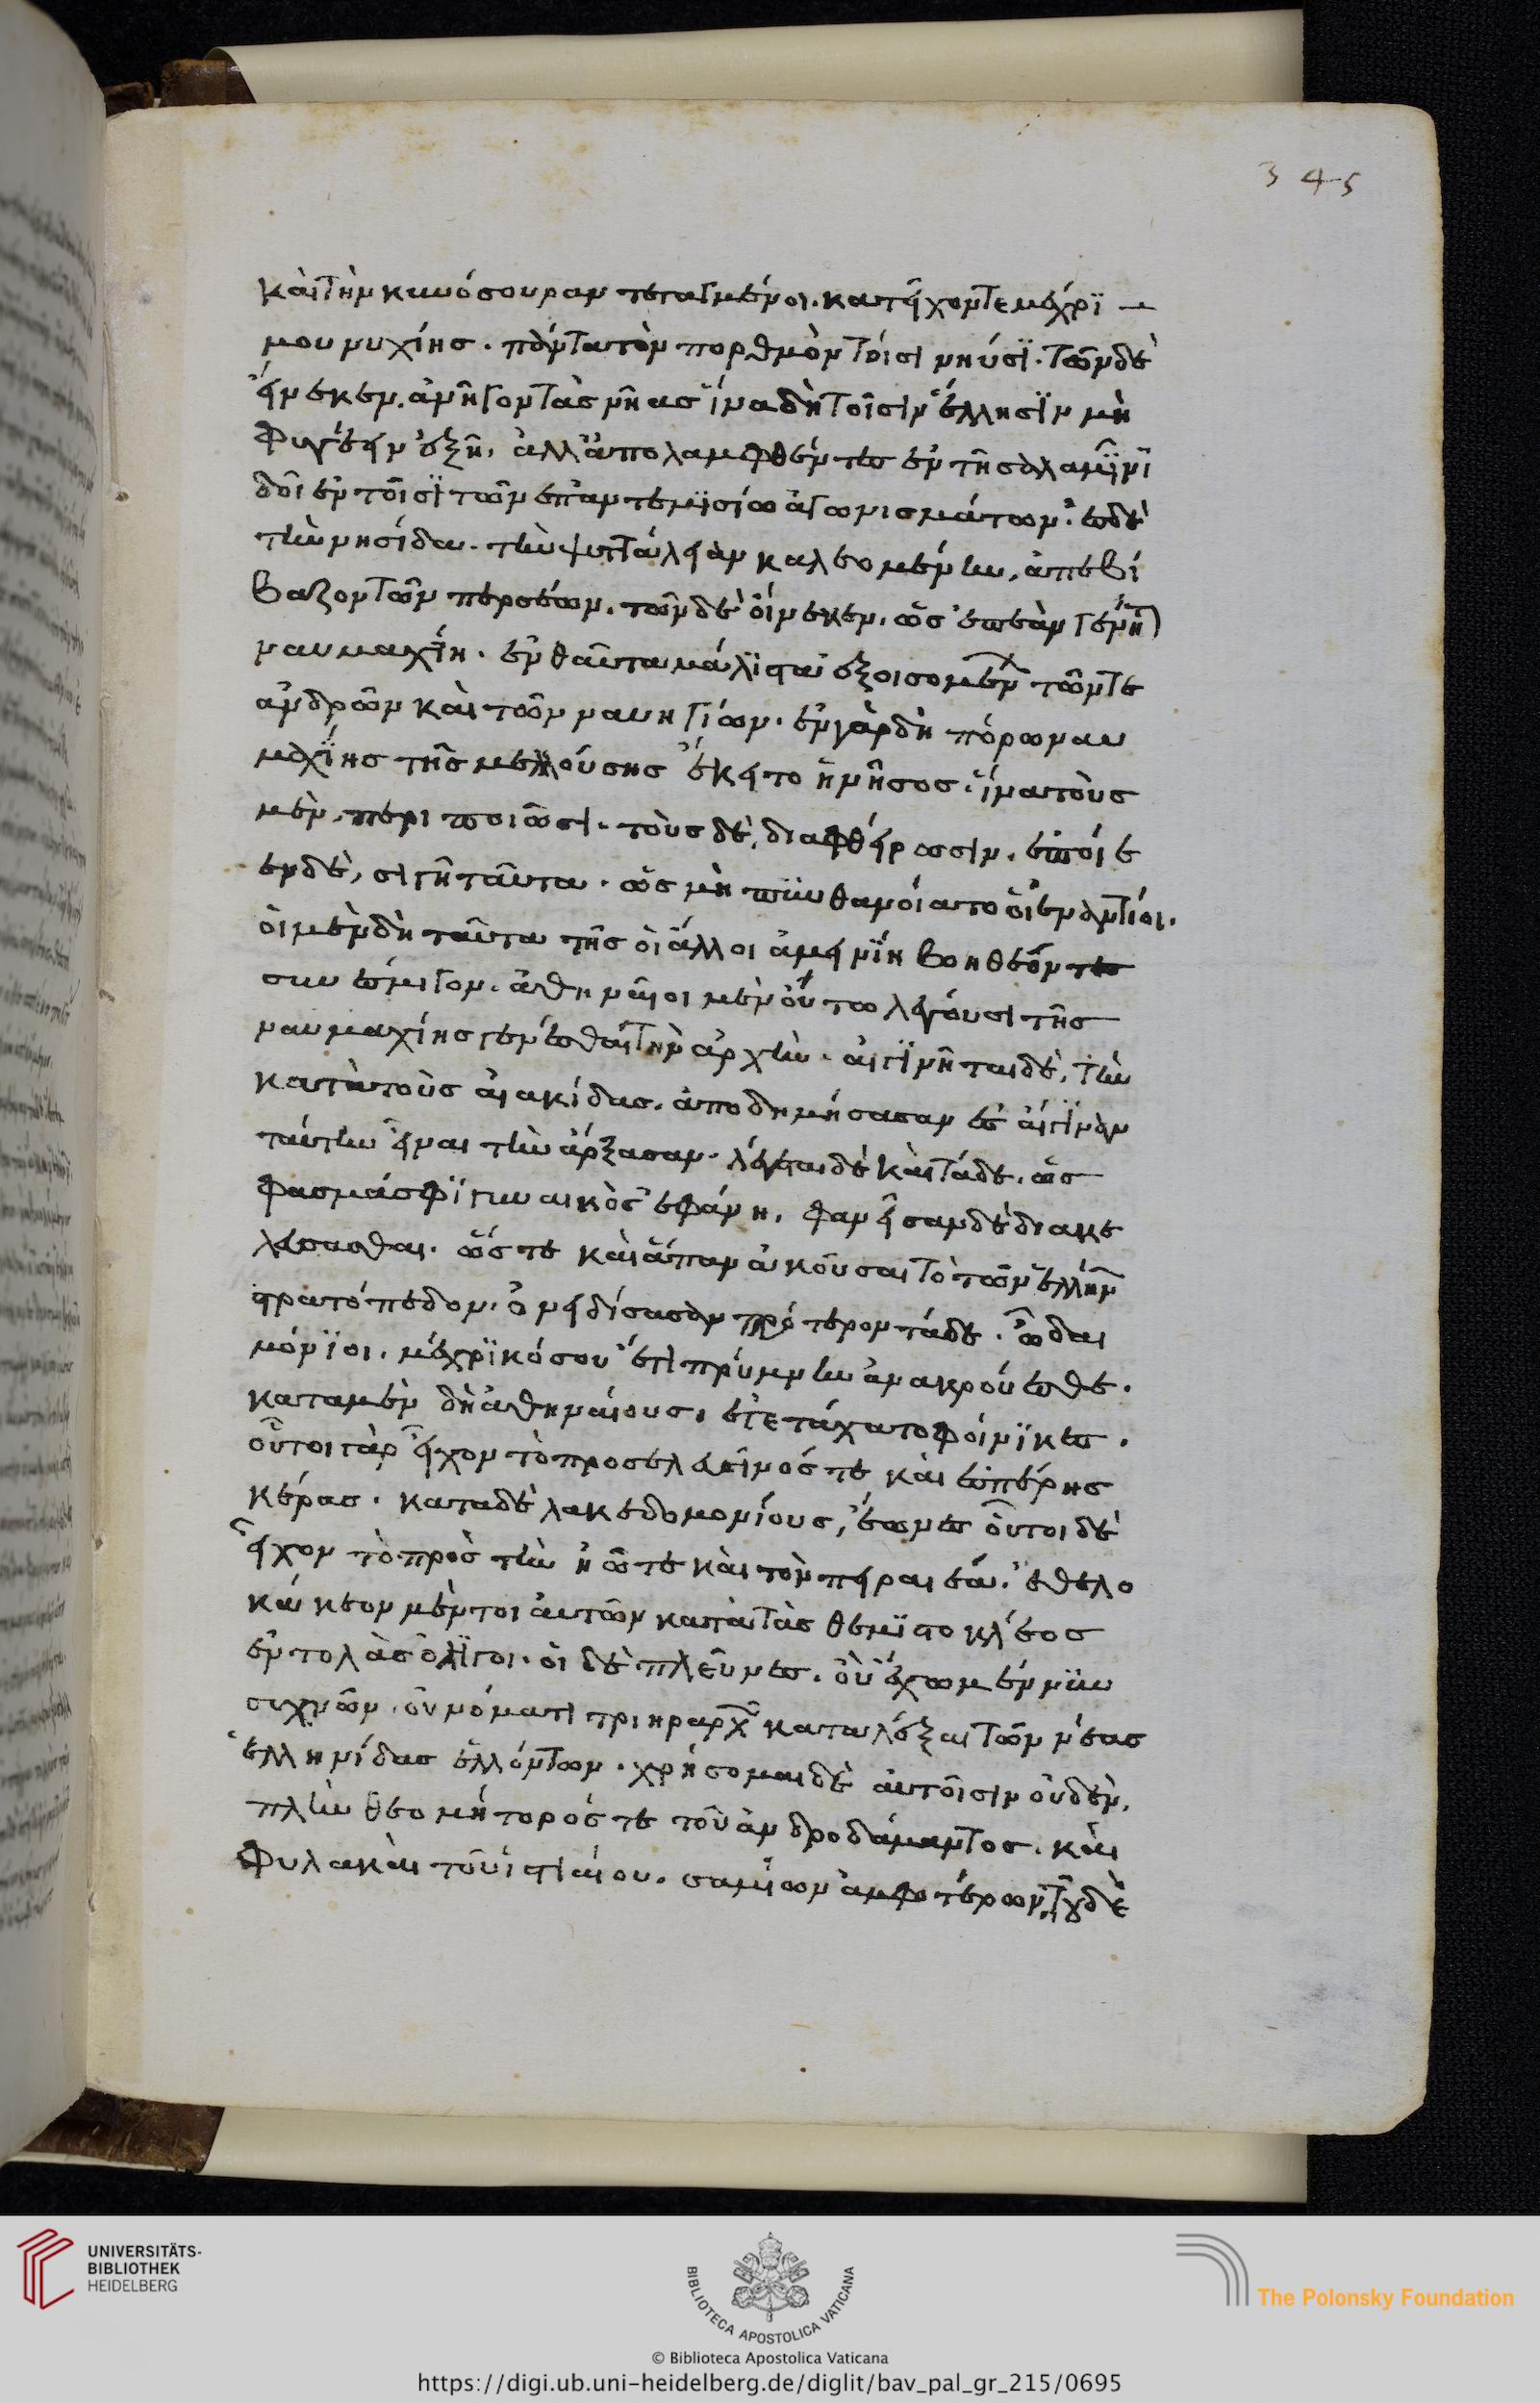 345
καὶ τὴν κυνόσουραν τεταγμένοι. κατεῖχόν τε μέχρϊ
μουνυχίης. πάντα τὸν πορθμὸν τῆισι νηύσϊ. τῶνδε
εἵνεκεν. ἀνῆγον τὰς νῆας ἵνα δὴ τοῖσιν ἕλλησϊν μὴ
φυγέειν ἐξῆ. ἀλλ' ἀπολαμφθέντες ἐν τῆ σαλαμῖνϊ
δοῖεν τοῖσϊ τῶν ἐπ' ἀρτεμϊσίω ἀγωνισμάτων. ἐς δὲ
τὴν νησίδα. τὴν ψυττάλειαν καλεομένην, ἀπεβί
βαζον τῶν περσέων. τῶνδε εἵνεκεν. ὡς ἐπεὰν γένη
ναυμαχίη. ἐνθαῦτα μάλϊστα ἐξοισομένων τῶν τε
ἀνδρῶν καὶ τῶν ναυηγίων. ἐν γὰρ δὴ πόρω ναυ
μαχίης τῆς μελλούσης ἔκειτο ἡ νῆσος. ἵνα τοὺς
μὲν, περιποιῶσι. τοὺς δὲ, διαφθείρωσιν. ἐποίε
ον δὲ, σιγῆ ταῦτα. ὡς μὴ πυνθανοίατο οἱ ἐναντίοι.
οἱ μὲν δὴ ταῦτα τῆς οἱ ἄλλοι ἀμεινϊη βοηθέοντες
συνέμιγον. ἀθηναῖοι μὲν οὕτω λέγουσι τῆς
ναυμαχίης γενέσθαι τὴν ἀρχὴν. αἰγϊνῆται δὲ, τὴν
κατὰ τοὺς αἰακίδας. ἀποδημήσασαν ἐς αἴγϊναν
ταύτην εἶναι τὴν ἄρξασαν. λέγεται δὲ καὶ τάδε. ὡς
φάσμα σφϊ γυναικὸς ἐφάνη. φανεῖσαν δὲ διακε
λεύσασθαι. ὥστε καὶ ἅπαν ἀκοῦσαι τὸ τῶν ἑλλήνων
στρατόπεδον. ὀνειδίσασαν πρότερον τάδε. ὦ δαι
μόνϊοι. μέχρϊ κόσου ἔτι πρύμνην ἀνακρούεσθε.
κατὰ μὲν δὴ ἀθηναίους. ἐτετάχατο φοίνϊκες.
οὗτοι γὰρ εἶχον τὸ πρὸς ἐλευσῖνός τε καὶ ἑσπέρης
κέρας. κατὰ δὲ λακεδαιμονίους, ἴωνες οὗτοι δὲ
εἶχον τὸ πρὸς τὴν ἠῶ τε καὶ τὸν πειραιέα. ἐθελο
κάκεον μέντοι αὐτῶν κατὰ τὰς θεμϊστοκλέος
ἐντολὰς ὀλϊγοι. οἱ δὲ πλεῦνες. οὔ ἔχω μέν νϋν
συχνῶν οὐνόματα τριηράρχων καταλέξαι τῶν νέας
ἑλληνίδας ἑλόντων. χρήσομαι δὲ αὐτοῖσιν οὐδὲν.
πλὴν θεομήτορός τε τοῦ ἀνδροδάμαντος. καὶ
φυλακοῦ τοῦ ἱστιαίου. σαμίων ἀμφοτέρων τοῦδὲ
UNIVERSITÄTS-
BIBLIOTHEK
HEIDELBERG
BIBLIOTECA APOSTOLICA VATICANA
The Polonsky Foundation
© Biblioteca Apostolica Vaticana
https://digi.ub.uni-heidelberg.de/diglit/bav_pal_gr_215/0695